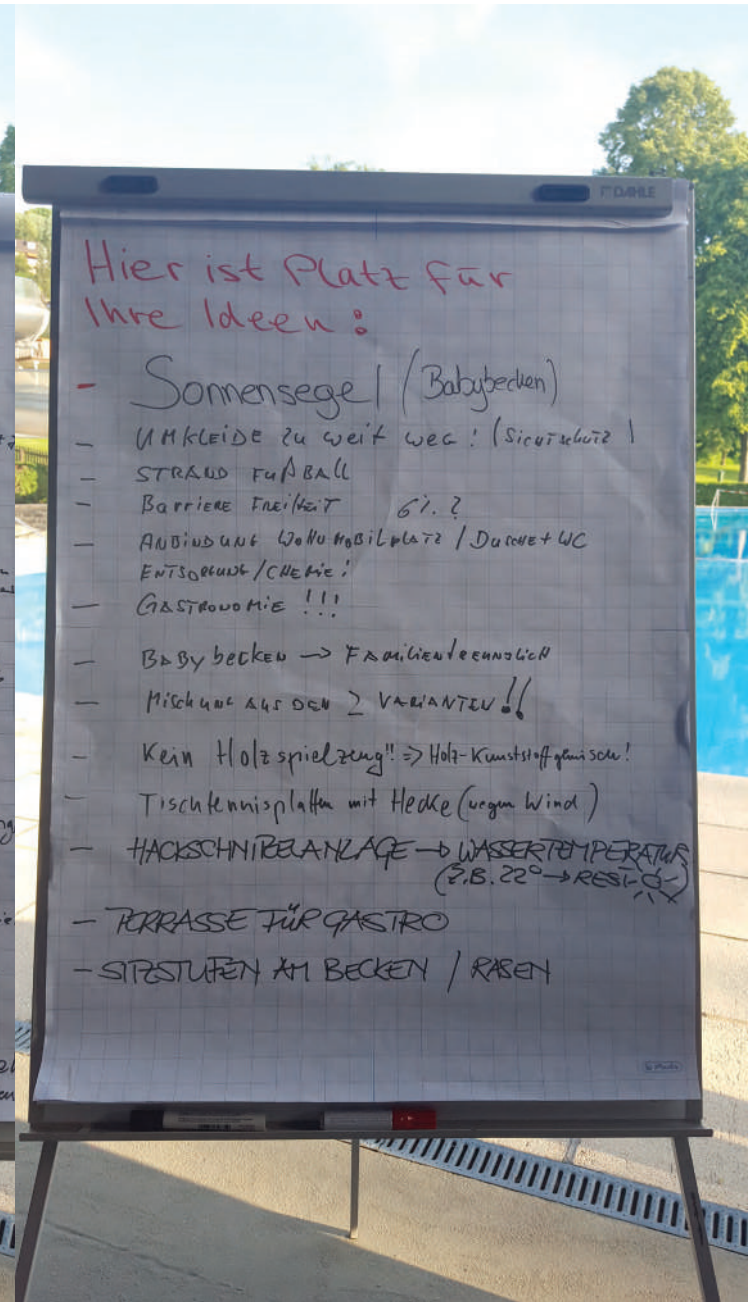 DAHLE
Hier ist Platz für
Ihre Ideen:
- Sonnensegel (Babybecken)
- UMKLEIDE zu weit weg! (Sichtschutz)
- STRAND FUßBALL
- Barriere Freiheit 6%?
- ANBINDUNG WOHNMOBILPLATZ / DUSCHE + WC
ENTSORGUNG/CHEMIE!
- GASTRONOMIE !!!
- Babybecken → FAMILIENFREUNDLICH
- Mischung AUS DEN 2 VARIANTEN!!
- Kein Holzspielzeug!! => Holz-Kunststoffgemische!
- Tischtennisplatten mit Hecke (wegen Wind)
- HACKSCHNITZELANLAGE → WASSERTEMPERATUR
(Z.B. 22° → REST-
- TERRASSE FÜR GASTRO
- SITZSTUFEN AM BECKEN / RASEN